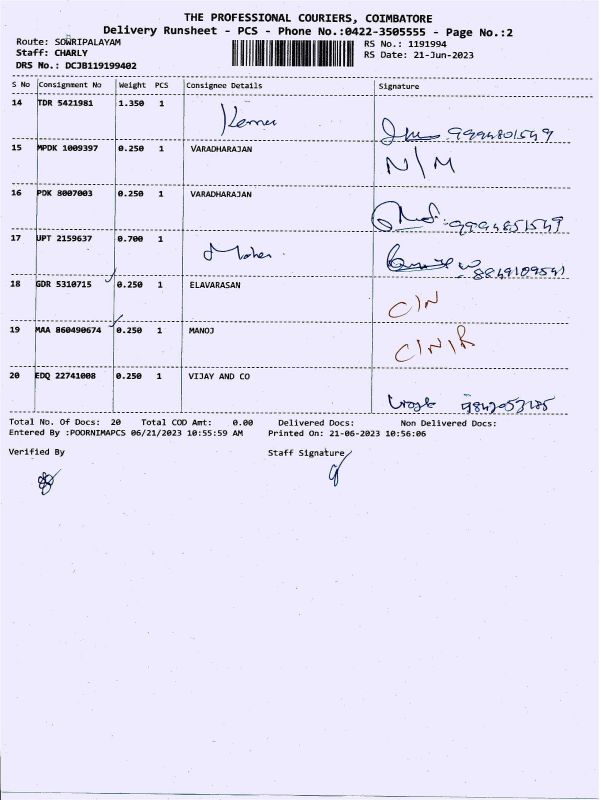 THE PROFESSIONAL COURIERS, COIMBATORE
Delivery Runsheet - PCS - Phone No.:0422-3505555 - Page No.:2
Route: SOWRIPALAYAM
Staff: CHARLY
DRS No.: DCJB119199402
RS No.: 1191994
RS Date: 21-Jun-2023
S No Consignment No Weight PCS Consignee Details Signature
14 TDR 5421981 1.350 1
15 MPDK 1009397 0.250 1 VARADHARAJAN N/M
16 PDK 8007003 0.250 1 VARADHARAJAN
17 UPT 2159637 0.700 1
18 GDR 5310715 0.250 1 ELAVARASAN C/N
19 MAA 860490674 0.250 1 MANOJ C/N/R
20 EDQ 22741008 0.250 1 VIJAY AND CO
Total No. Of Docs: 20 Total COD Amt: 0.00 Delivered Docs: Non Delivered Docs:
Entered By :POORNIMAPCS 06/21/2023 10:55:59 AM Printed On: 21-06-2023 10:56:06
Verified By Staff Signature